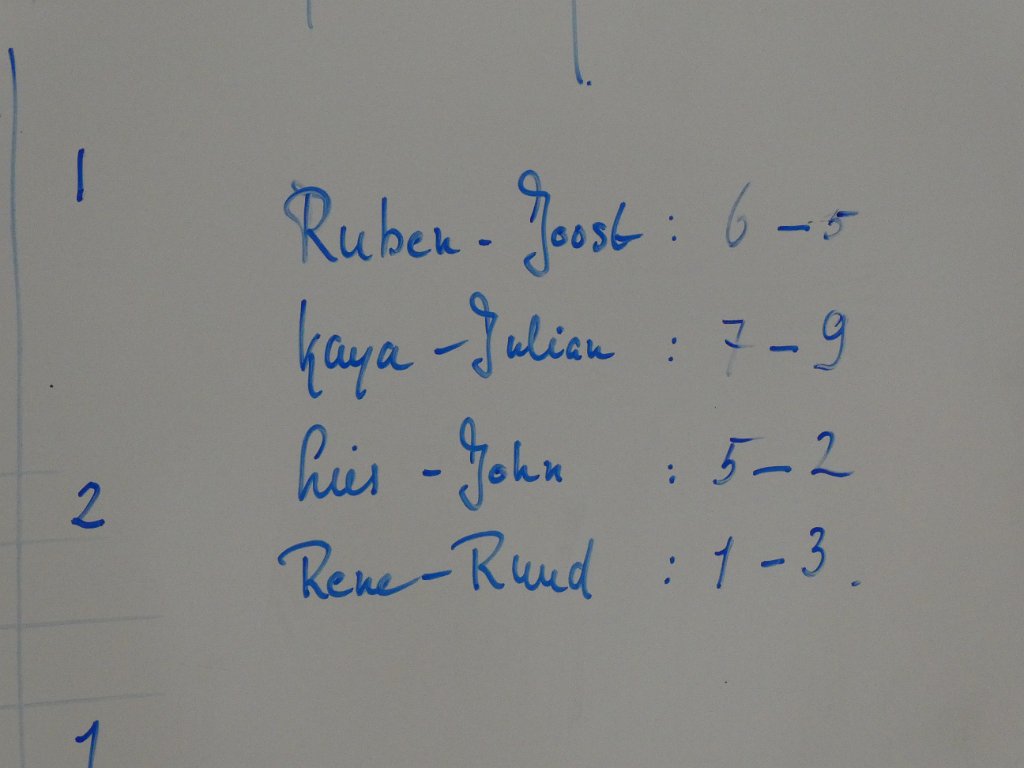 1
Ruben - Joost : 6 - 5
Kaya - Julian : 7 - 9
Lies - John : 5 - 2
2
Rene - Ruud : 1 - 3.
1